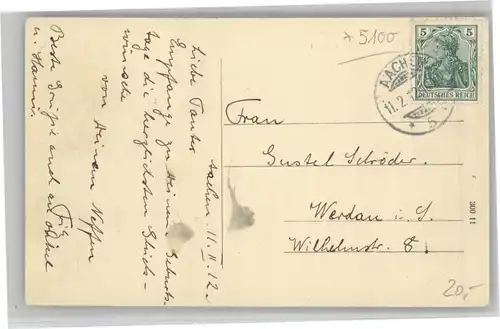 * 5100
5 5
DEUTSCHES REICH
AACHEN
11.2.12
* b
Aachen 11. II. 12.
Liebe Tante
Empfange zu Deinem Geburts-
tage die herzlichsten Glück-
wünsche
von Deinem Neffen
Fritz
Beste Grüße auch an Onkel
u. Hanni
Frau
Gustel Schröder.
Werdau i. S.
Wilhelmstr. 8.
300 11
20,-